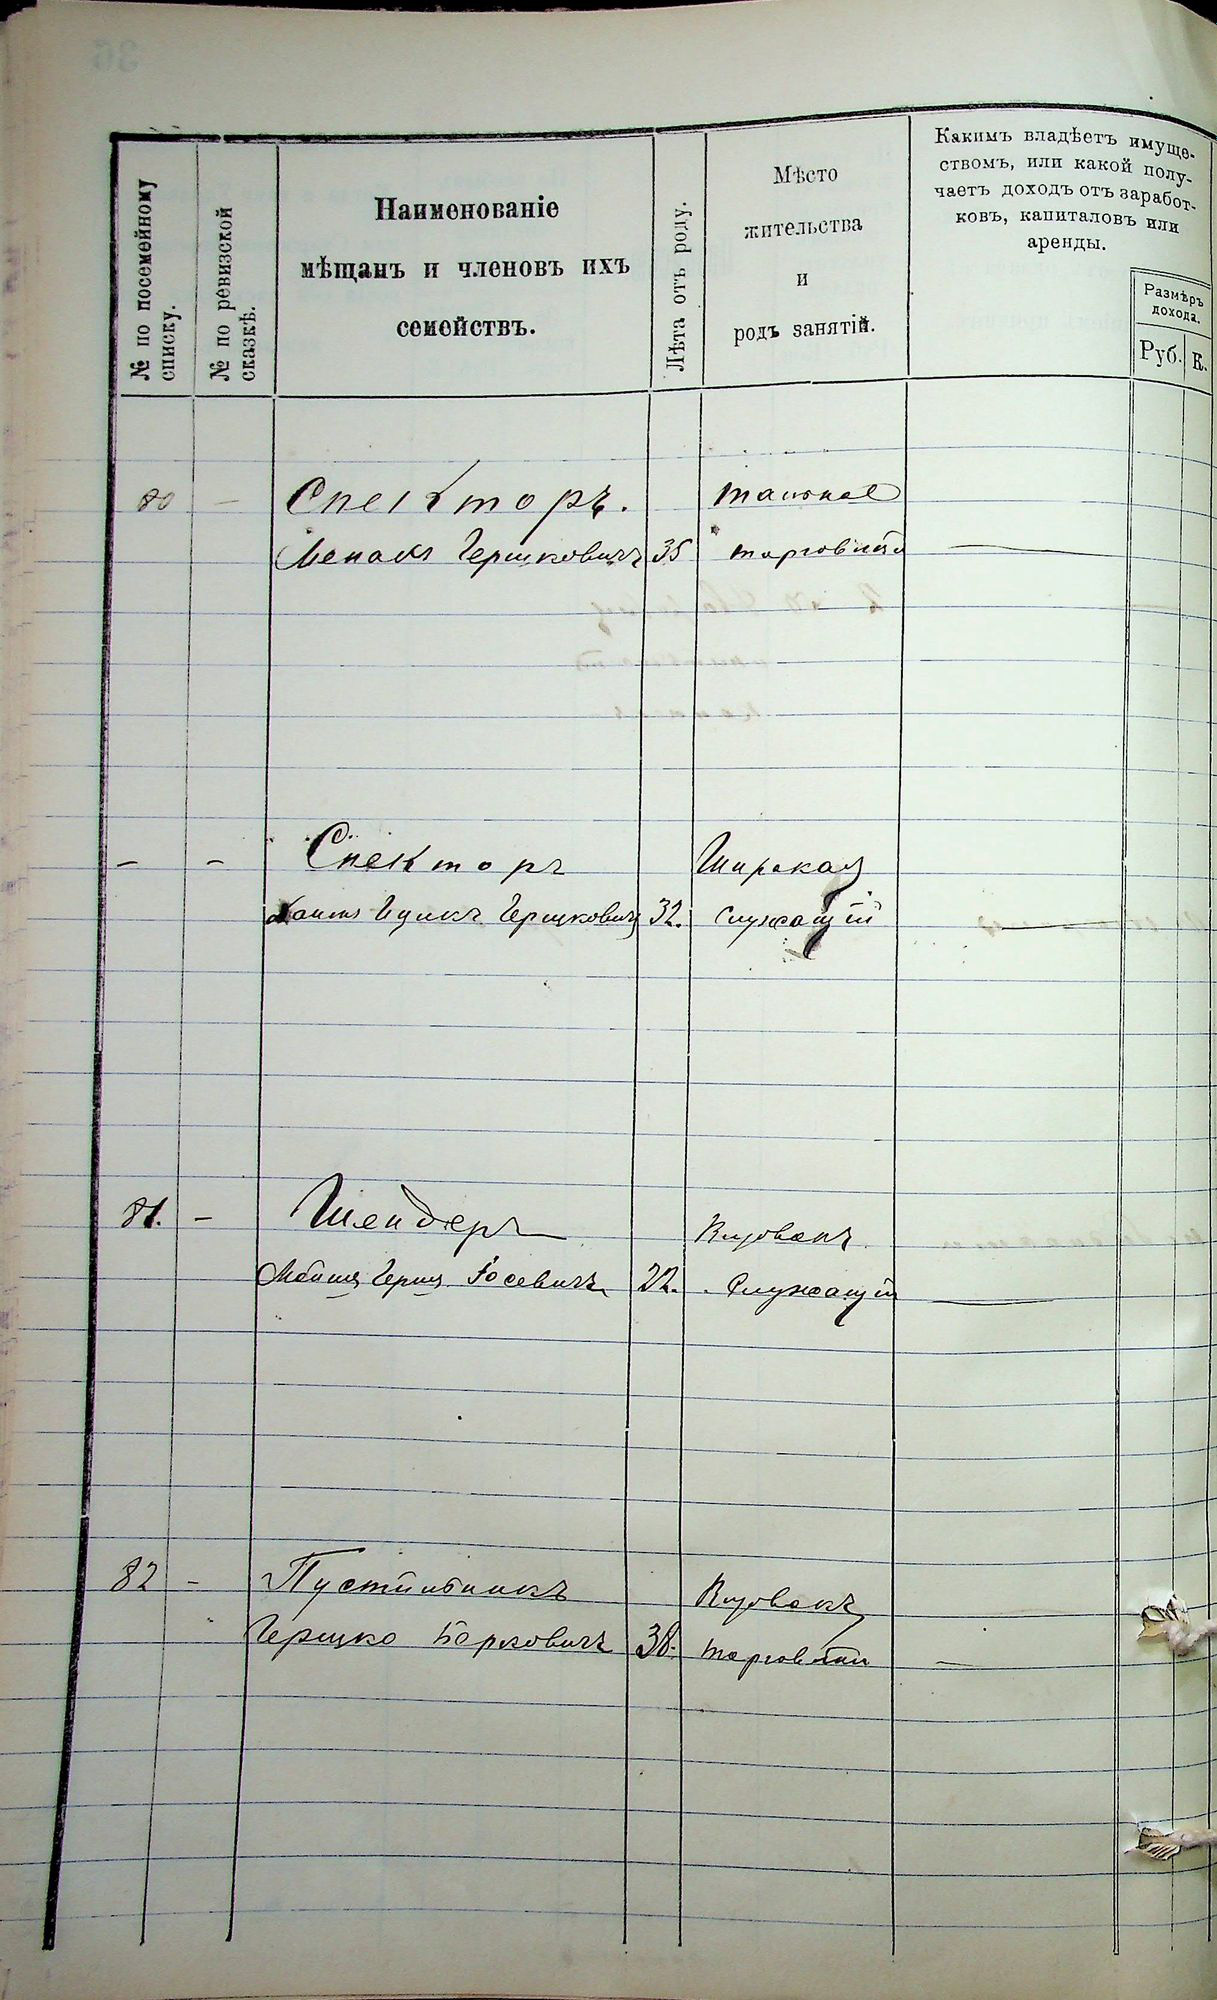 № по посемейному
списку.
№ по ревизской
сказкѣ.
Наименованіе
мѣщанъ и членовъ ихъ
семействъ.
Лѣта отъ роду.
Мѣсто
жительства
и
родъ занятій.
Какимъ владѣетъ имуще-
ствомъ, или какой полу-
чаетъ доходъ отъ заработ-
ковъ, капиталовъ или
аренды.
Размѣръ
дохода.
Руб. К.
80 — Спекторъ.
Гершковичъ 35 торговля —
— — Спекторъ Широкая
Хаимъ Ицикъ Гершковичъ 32. Служащій —
81. — Шендеръ
Герш Іосевичъ 22. Служащій —
82 — Пустильникъ
Гершко Борковичъ 38. торговли —